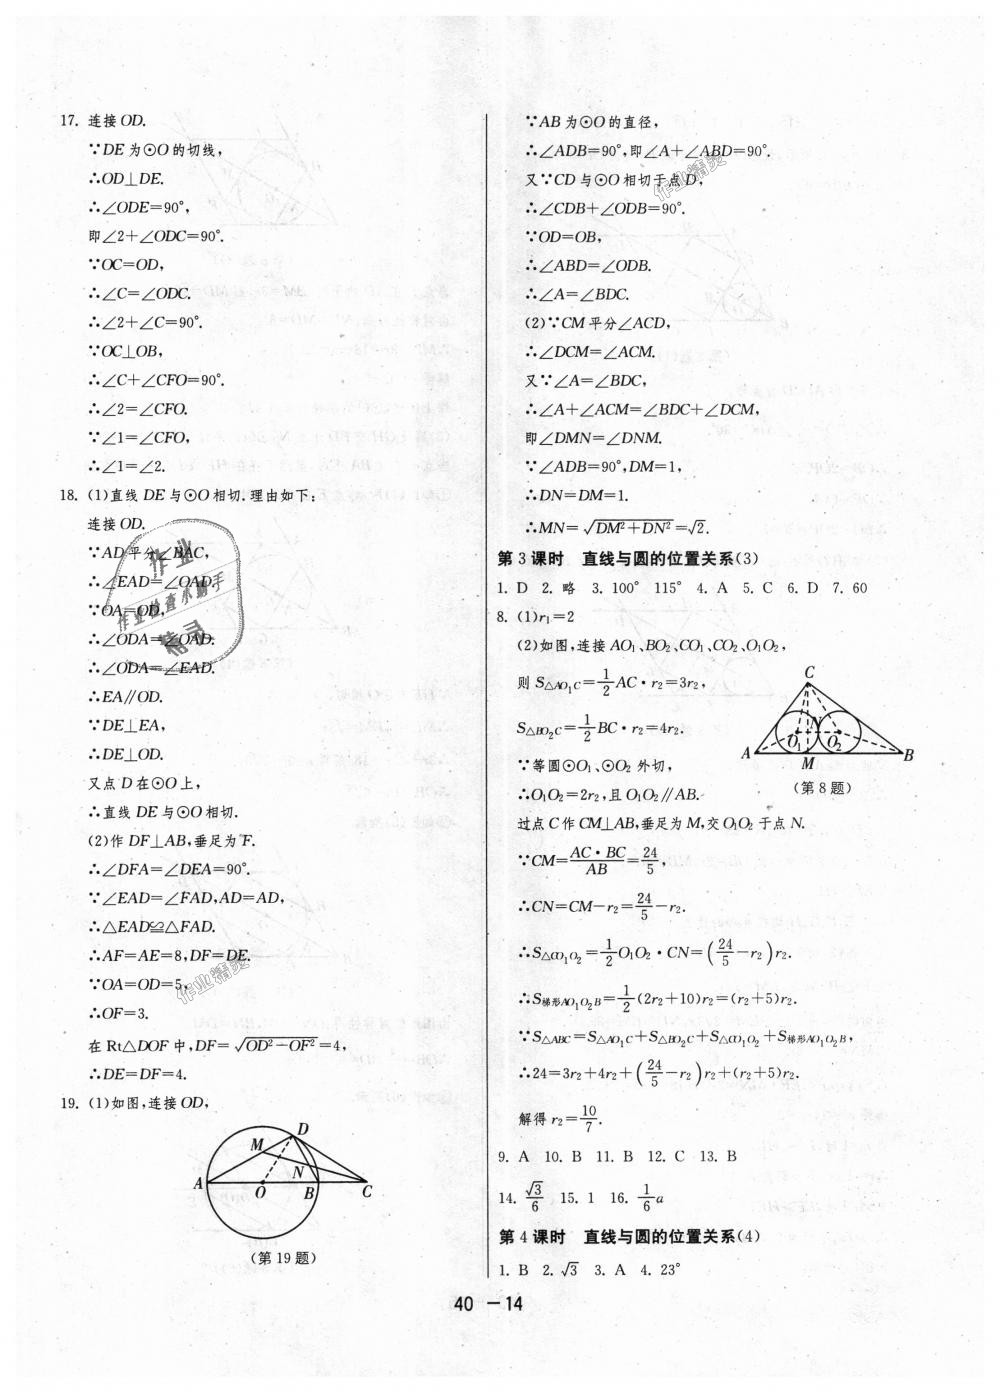 17. 连接OD.
∵DE为⊙O的切线,
∴OD⊥DE.
∴∠ODE=90°,
即∠2+∠ODC=90°.
∵OC=OD,
∴∠C=∠ODC.
∴∠2+∠C=90°.
∵OC⊥OB,
∴∠C+∠CFO=90°.
∴∠2=∠CFO.
∵∠1=∠CFO,
∴∠1=∠2.
18. (1)直线DE与⊙O相切.理由如下:
连接OD.
∵AD平分∠BAC,
∴∠EAD=∠OAD.
∵OA=OD,
∴∠ODA=∠OAD.
∴∠ODA=∠EAD.
∴EA∥OD.
∵DE⊥EA,
∴DE⊥OD.
又点D在⊙O上,
∴直线DE与⊙O相切.
(2)作DF⊥AB,垂足为F.
∴∠DFA=∠DEA=90°.
∵∠EAD=∠FAD,AD=AD,
∴△EAD≌△FAD.
∴AF=AE=8,DF=DE.
∵OA=OD=5,
∴OF=3.
在Rt△DOF中,DF=√(OD²-OF²)=4,
∴DE=DF=4.
19. (1)如图,连接OD,
D
M
N
A O B C
(第19题)
∵AB为⊙O的直径,
∴∠ADB=90°,即∠A+∠ABD=90°.
又∵CD与⊙O相切于点D,
∴∠CDB+∠ODB=90°.
∵OD=OB,
∴∠ABD=∠ODB.
∴∠A=∠BDC.
(2)∵CM平分∠ACD,
∴∠DCM=∠ACM.
又∵∠A=∠BDC,
∴∠A+∠ACM=∠BDC+∠DCM,
即∠DMN=∠DNM.
∵∠ADB=90°,DM=1,
∴DN=DM=1.
∴MN=√(DM²+DN²)=√2.
第3课时 直线与圆的位置关系(3)
1. D 2. 略 3. 100° 115° 4. A 5. C 6. D 7. 60
8. (1)r₁=2
(2)如图,连接AO₁、BO₂、CO₁、CO₂、O₁O₂,
则S△AO₁C=1/2 AC·r₂=3r₂,
S△BO₂C=1/2 BC·r₂=4r₂.
∵等圆⊙O₁、⊙O₂外切,
∴O₁O₂=2r₂,且O₁O₂∥AB.
C
N
O₁ O₂
A M B
(第8题)
过点C作CM⊥AB,垂足为M,交O₁O₂于点N.
∵CM=AC·BC/AB=24/5,
∴CN=CM-r₂=24/5-r₂.
∴S△CO₁O₂=1/2 O₁O₂·CN=(24/5-r₂)r₂.
∴S梯形AO₁O₂B=1/2(2r₂+10)r₂=(r₂+5)r₂.
∵S△ABC=S△AO₁C+S△BO₂C+S△CO₁O₂+S梯形AO₁O₂B,
∴24=3r₂+4r₂+(24/5-r₂)r₂+(r₂+5)r₂.
解得r₂=10/7.
9. A 10. B 11. B 12. C 13. B
14. √3/6 15. 1 16. 1/6 a
第4课时 直线与圆的位置关系(4)
1. B 2. √3 3. A 4. 23°
40 -14
作业
作业检查小助手
精灵
作业精灵
作业精灵